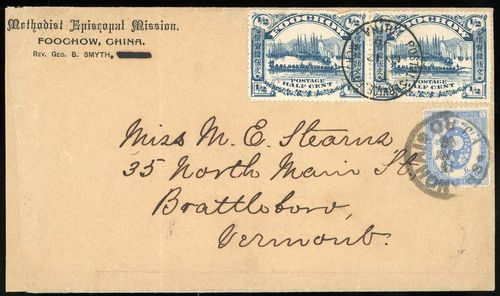 Methodist Episcopal Mission.
FOOCHOW, CHINA.
REV. GEO. B. SMYTH,
½ FOOCHOW ½
POSTAGE
½ HALF CENT ½
½ FOOCHOW ½
POSTAGE
½ HALF CENT ½
Miss M. E. Stearns
35 North Main St.
Brattleboro,
Vermont.